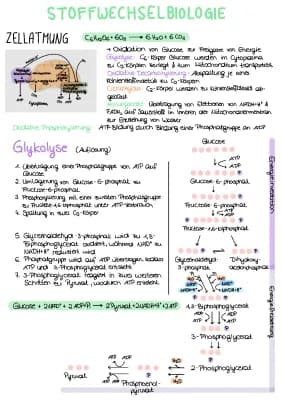 STOFFWECHSELBIOLOGIE
ZELLATMUNG
C₆H₁₂O₆ + 6O₂ → 6 H₂O + 6 CO₂
→ Oxidation von Glucose zur Freigabe von Energie
Glykolyse: C₆-Körper Glucose werden im Cytoplasma
zu C₃-Körpern zerlegt & zum Mitochondrium transportiert
Oxidative Decarboxylierung: Abspaltung eines
Kohlenstoffmoleküls zu C₂-Körpern
C₂-Körper werden zu Kohlenstoffdioxid
Übertragung von Elektronen von NADH+H⁺ &
FADH₂ auf Sauerstoff in inneren der Mitochondrienmembran
zur Entstehung von Wasser
Oxidative Phosphorylierung: ATP-Bildung durch Bindung einer Phosphatgruppe an ADP
Glykolyse (Auflösung)
1. Übertragung einer Phosphatgruppe von ATP auf
Glucose
2. Umlagerung von Glucose-6-phosphat zu
Fructose-6-phosphat
3. Phosphorylierung mit einer zweiten Phosphatgruppe
zu Fructose-1,6-biphosphat unter ATP-Verbrauch
4. Spaltung in zwei C₃-Körper
5. Glycerinaldehyd-3-phosphat wird zu 1,3-
Biphosphoglycerat oxidiert, während NAD⁺ zu
NADH+H⁺ reduziert wird
6. Phosphatgruppe wird auf ADP übertragen, sodass
ATP und 3-Phosphoglycerat entsteht
7. 3-Phosphoglycerat reagiert in zwei weiteren
Schritten zu Pyruvat, wodurch ATP entsteht
Glucose + 2NAD⁺ + 2ADP+Pi → 2Pyruvat + 2NADH+H⁺ + 2ATP
Glucose
ATP
ADP
Glucose-6-phosphat
Fructose-6-phosphat
ATP
ADP
Fructose-1,6-biphosphat
Glycerinaldehyd-
3-phosphat
Dihydroxy-
acetonphosphat
1,3-Biphosphoglycerat
ADP
ATP
3-Phosphoglycerat
2-Phosphoglycerat
H₂O
Phosphoenol-
pyruvat
ADP
ATP
Pyruvat
Energieinvestition